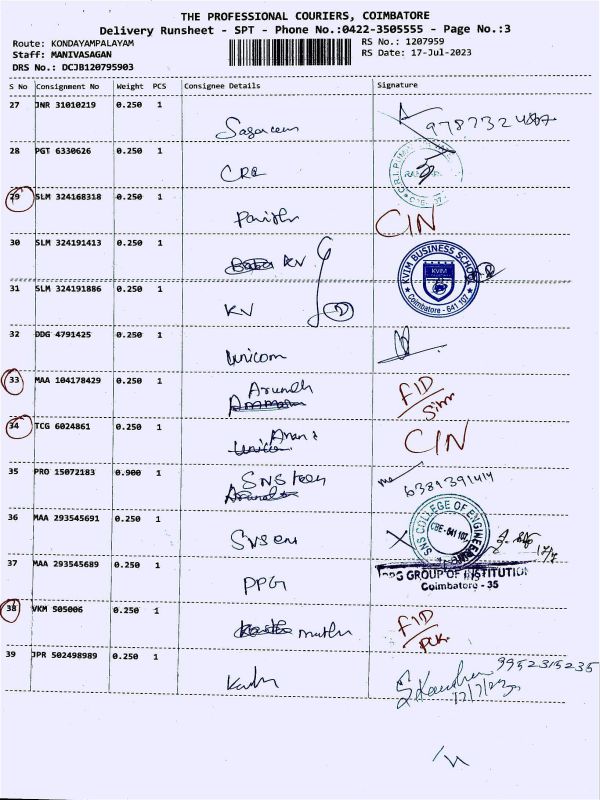 THE PROFESSIONAL COURIERS, COIMBATORE
Delivery Runsheet - SPT - Phone No.:0422-3505555 - Page No.:3
Route: KONDAYAMPALAYAM
RS No.: 1207959
Staff: MANIVASAGAN
RS Date: 17-Jul-2023
DRS No.: DCJB120795903
S No Consignment No Weight PCS Consignee Details Signature
27 JNR 31010219 0.250 1
28 PGT 6330626 0.250 1
CRE
29 SLM 324168318 0.250 1
CIN
30 SLM 324191413 0.250 1
KV
KVIM BUSINESS SCHOOL
KVIM
Coimbatore - 641 107
31 SLM 324191886 0.250 1
KV
32 DDG 4791425 0.250 1
Unicom
33 MAA 104178429 0.250 1
FID
34 TCG 6024861 0.250 1
CIN
35 PRO 15072183 0.900 1
SNS
6381391414
36 MAA 293545691 0.250 1
SNS COLLEGE OF ENGINEERING
CBE - 641 107
17/7
37 MAA 293545689 0.250 1
PPG
PPG GROUP OF INSTITUTION
Coimbatore - 35
38 VKM 505006 0.250 1
FID
39 JPR 502498989 0.250 1
9952315235